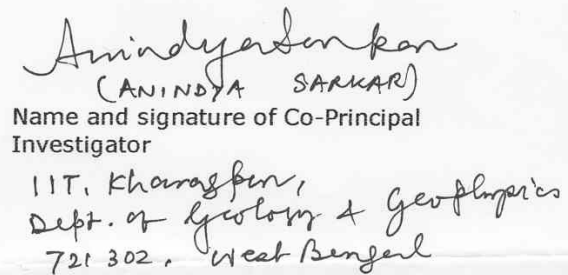 Anindya Sarkar
(ANINDYA SARKAR)
Name and signature of Co-Principal
Investigator
IIT, Kharagpur,
Dept. of Geology & Geophysics
721 302, West Bengal